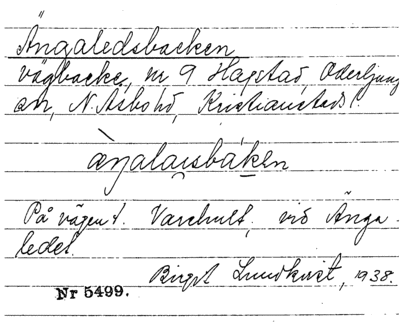 Ängaledsbacken
vägbacke, nr 9 Hagstad, Oderljung
sn, N. Åsbo hd, Kristianstads l.
På vägen t. Varshult, vid Änga-
ledet.
Birgit Lundkvist, 1938.
Nr 5499.